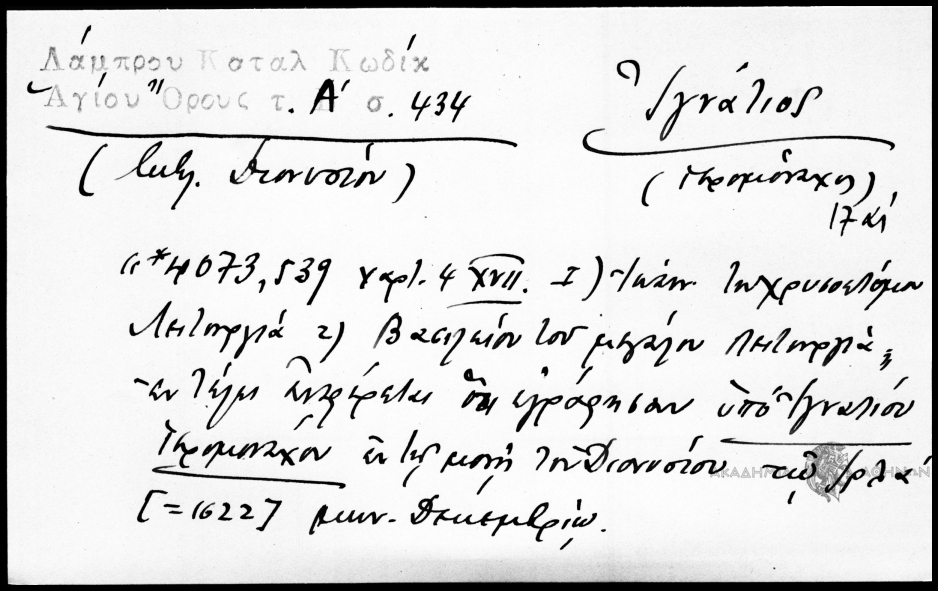 Λάμπρου Καταλ Κωδίκ
Ἁγίου Ὄρους τ. Α' σ. 434
Ἰγνάτιος
(Διονυσίου)
(Ἱερομόναχος)
«*4073,539 χαρτ. 4 XVII. 1) Ἰωάν. τοῦ Χρυσοστόμου
Λειτουργία 2) Βασιλείου τοῦ μεγάλου Λειτουργία
ἐν τέλει ἀναφέρεται ὅτι ἐγράφησαν ὑπὸ Ἰγνατίου
Ἱερομονάχου ἐν τῇ μονῇ τοῦ Διονυσίου τῷ
[=1622] μην. Δεκεμβρίῳ.
ΑΚΑΔΗΜΙΑ ΑΘΗΝΩΝ